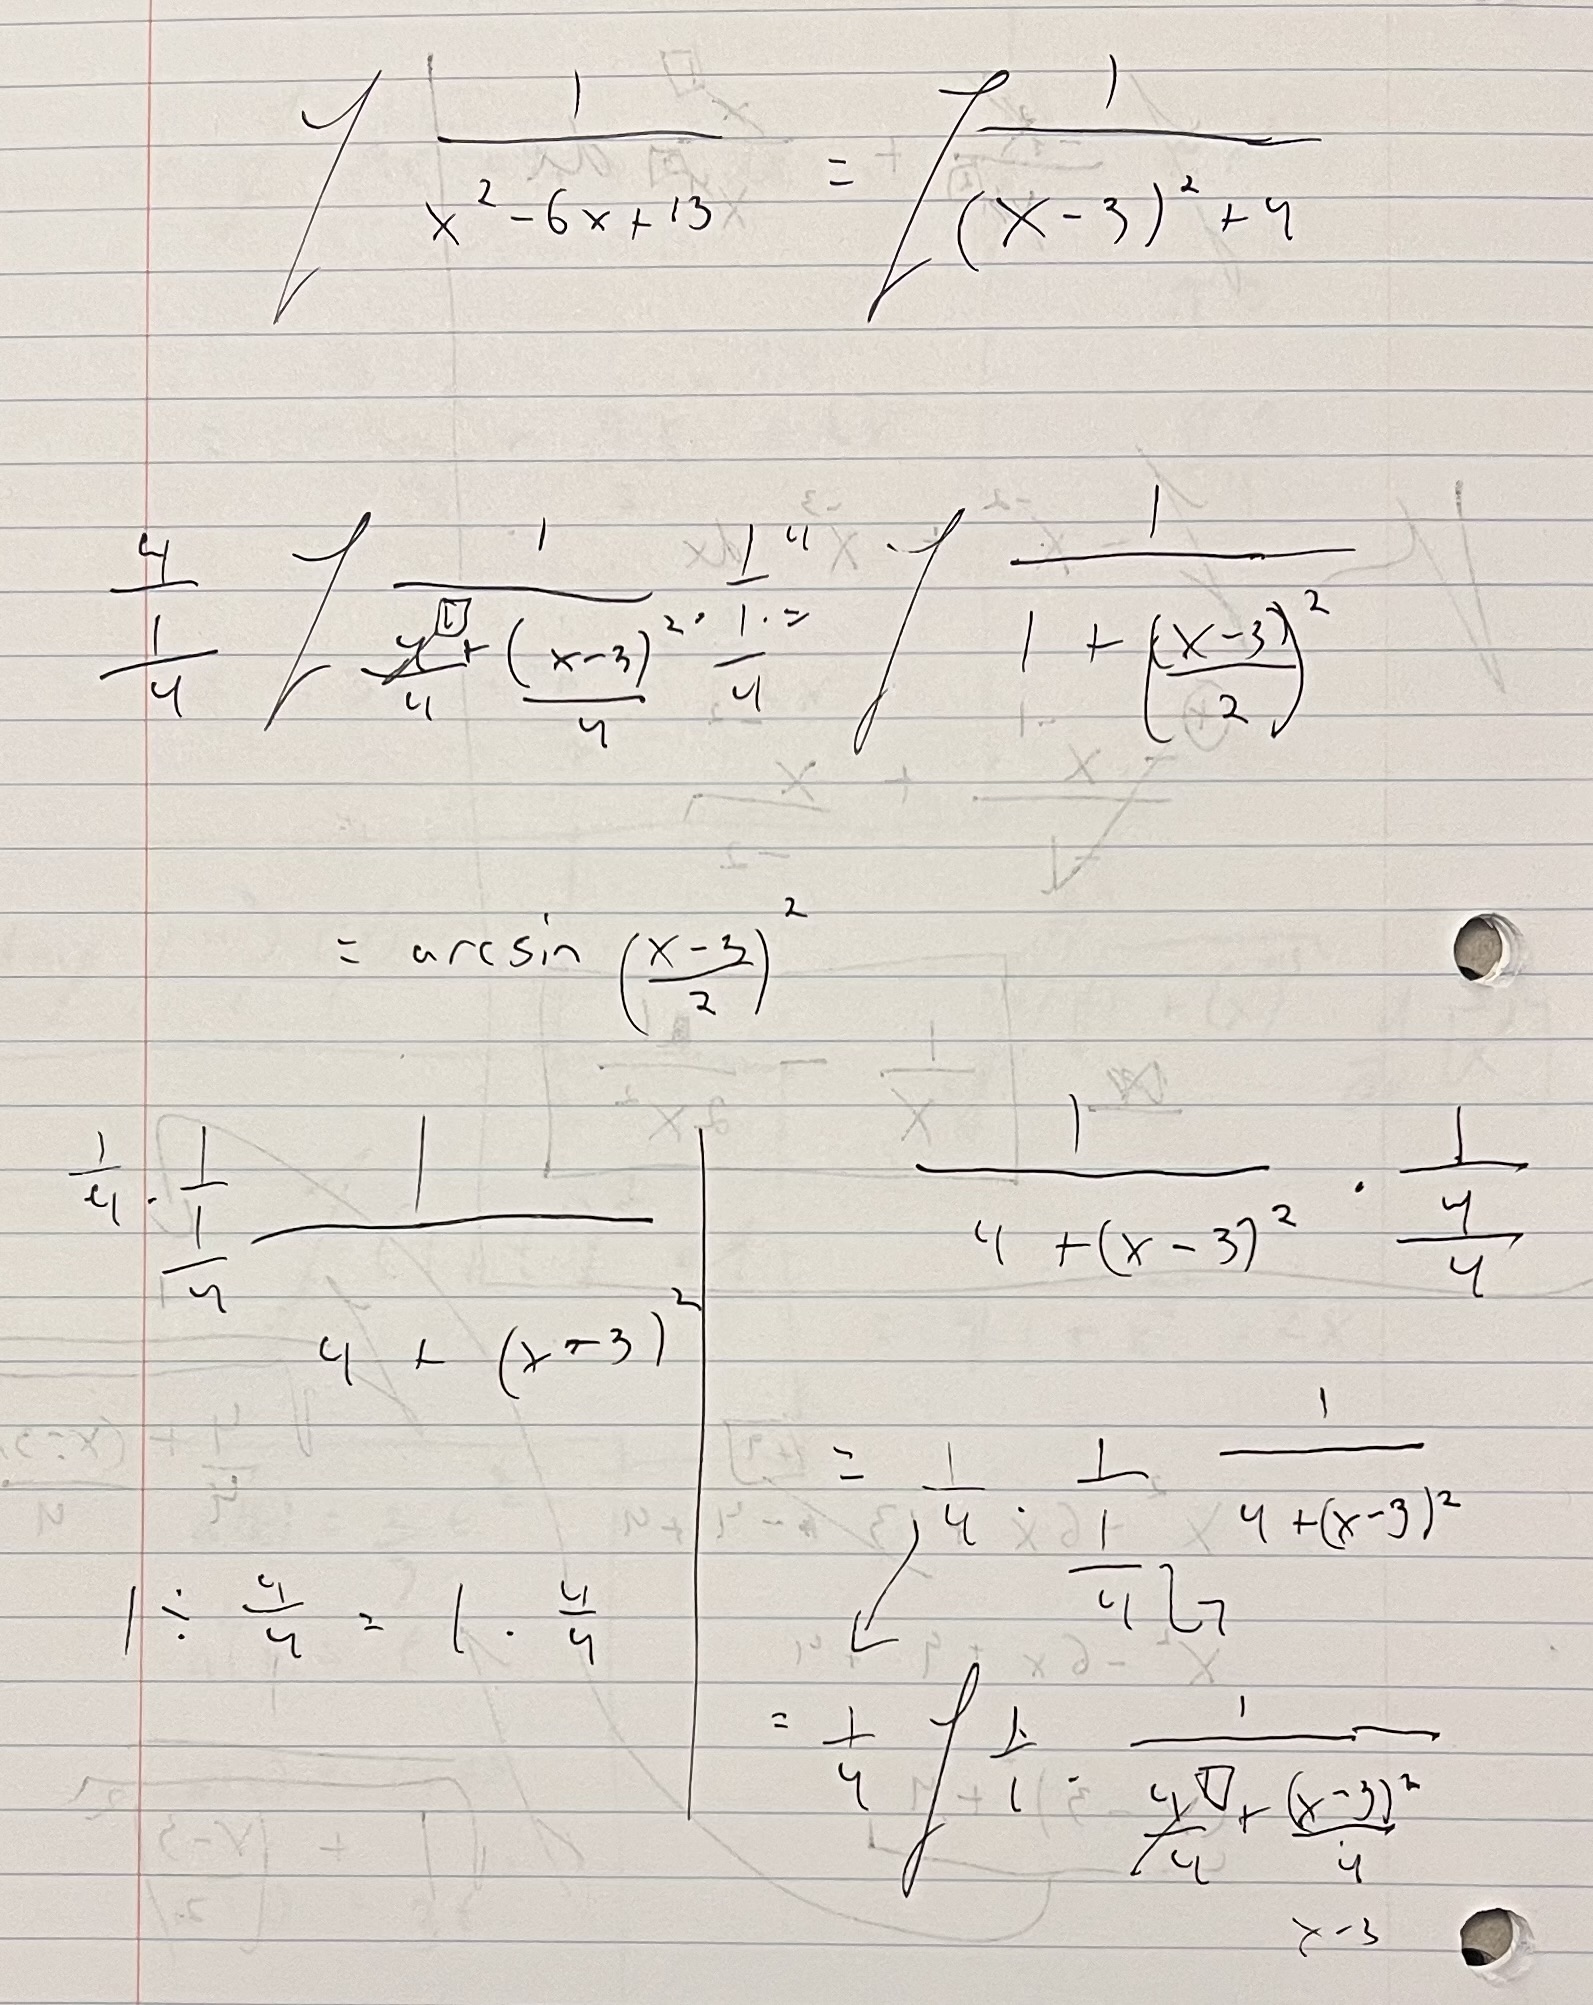 ∫ 1/(x² - 6x + 13) = ∫ 1/((x - 3)² + 4)
4/(1/4) ∫ 1/(4/4 + (x-3)²/4) · 1/(1/4) = ∫ 1/(1 + ((x-3)/2)²)
= arcsin ((x-3)/2)²
1/4 · 1/(1/4) 1/(4 + (x-3)²)
1 ÷ 4/4 = 1 · 4/4
1/(4 + (x-3)²) · 1/(4/4)
= 1/4 · 1/(1/4) 1/(4 + (x-3)²)
= 1/4 ∫ 1/1 · 1/(4/4 + (x-3)²/4)
x-3